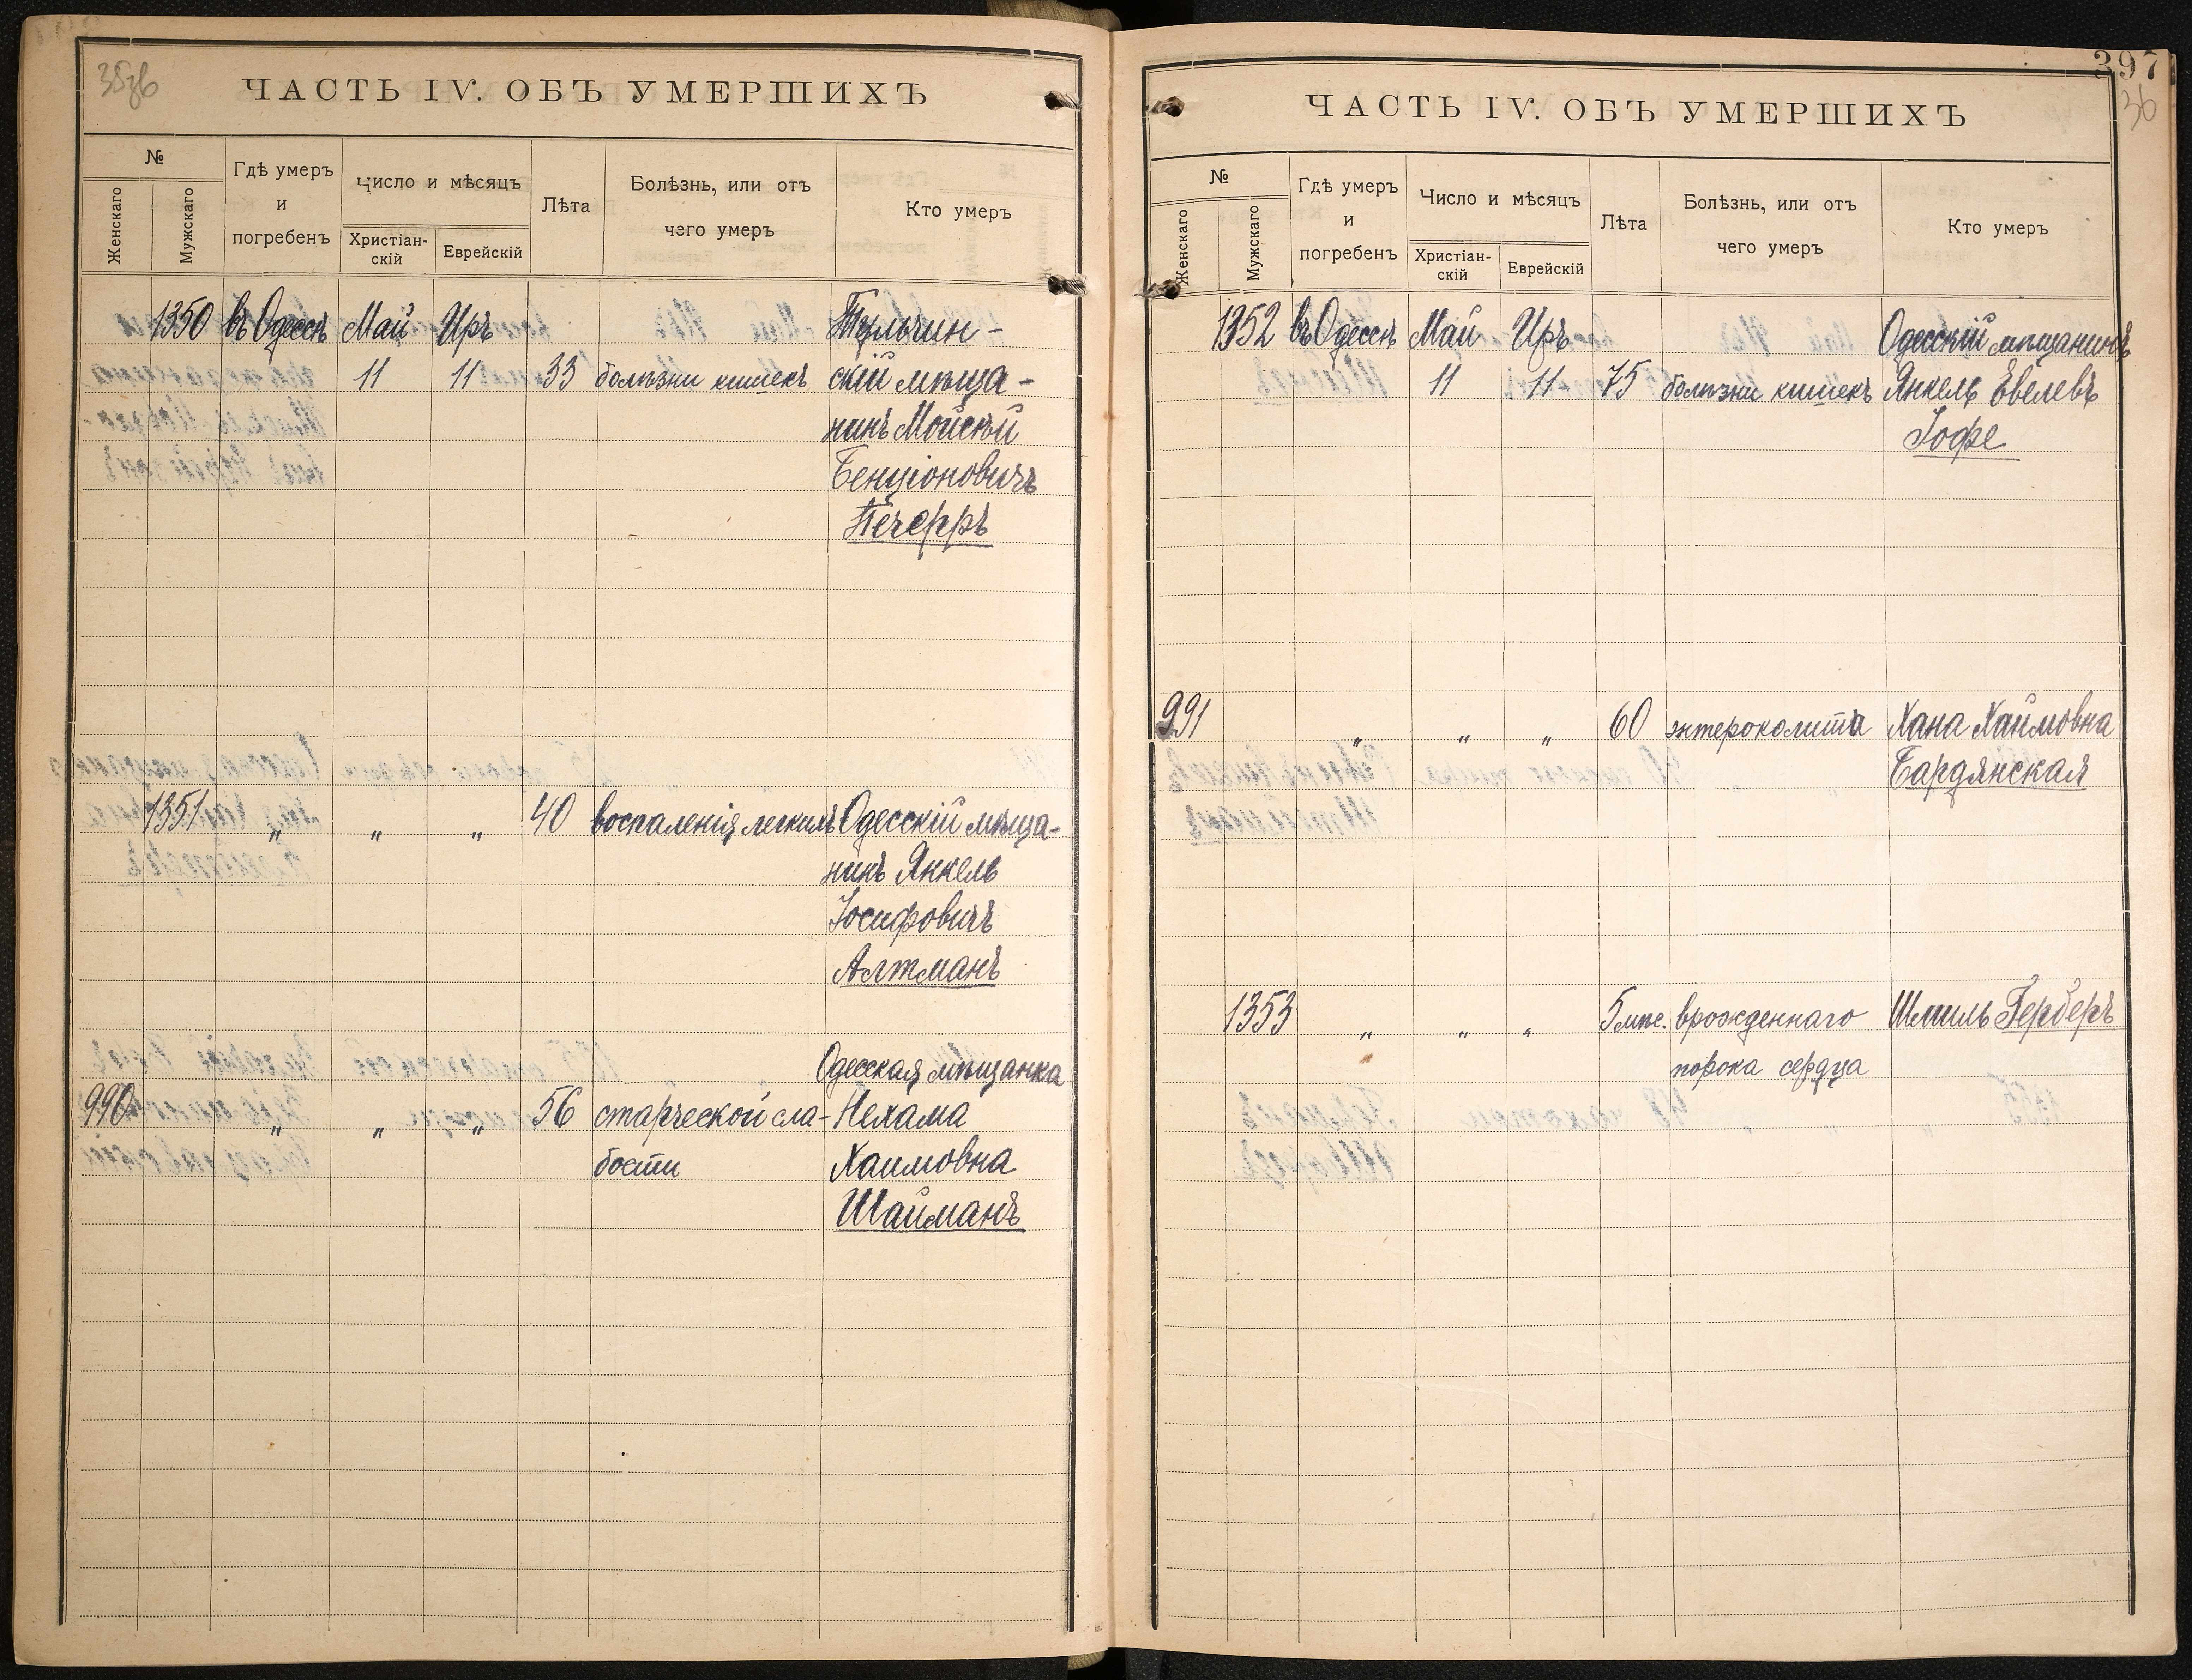 ЧАСТЬ IV. ОБЪ УМЕРШИХЪ
№
Женскаго
Мужскаго
Гдѣ умеръ
и
погребенъ
Число и мѣсяцъ
Христіан-
скій
Еврейскій
Лѣта
Болѣзнь, или отъ
чего умеръ
Кто умеръ
1350 въ Одессѣ Май Иръ Тульчин-
11 11 33 болѣзни кишекъ скій мѣща-
нинъ Мойсѣй
Бенціоновичъ
1351 „ „ „ 40 воспаленія легкихъ Одесскій мѣща-
нинъ Янкель
Іосифовичъ
Алтманъ
Одесская мѣщанка
990 „ „ „ 56 старческой сла- Нехама
бости Хаимовна
Шайманъ
397
36
ЧАСТЬ IV. ОБЪ УМЕРШИХЪ
№
Женскаго
Мужскаго
Гдѣ умеръ
и
погребенъ
Число и мѣсяцъ
Христіан-
скій
Еврейскій
Лѣта
Болѣзнь, или отъ
чего умеръ
Кто умеръ
1352 въ Одессѣ Май Иръ Одесскій мѣщанинъ
11 11 75 болѣзни кишекъ Янкель Евелевъ
Іофе
991 „ „ „ 60 энтероколита Хана Хаимовна
Бардянская
1353 „ „ „ 5 мѣс. врожденнаго Шмиль Герберъ
порока сердца